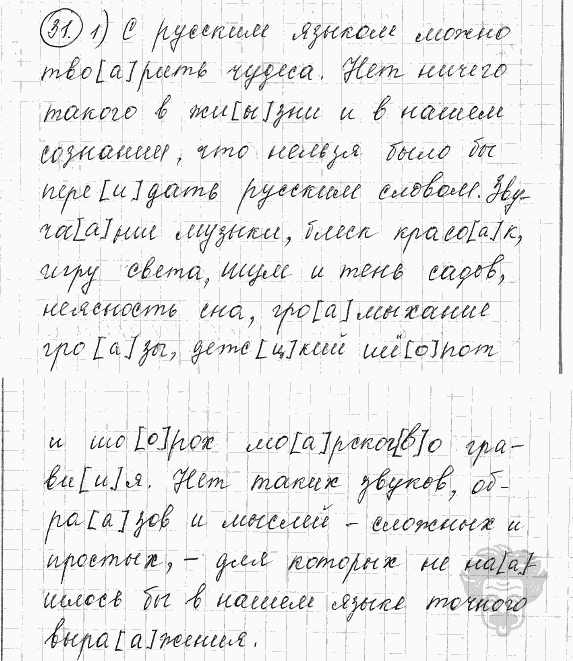 31. 1) С русским языком можно
тво[а]рить чудеса. Нет ничего
такого в жи[ы]зни и в нашем
сознании, что нельзя было бы
пере[и]дать русским словом. Зву-
ча[а]ние музыки, блеск красо[а]к,
игру света, шум и тень садов,
неясность сна, гро[а]мыхание
гро[а]зы, детс[ц]кий шё[о]пот
и шо[о]рох мо[а]рског[в]о гра-
ви[и]я. Нет таких звуков, об-
ра[а]зов и мыслей – сложных и
простых, – для которых не на[а]-
шлось бы в нашем языке точного
выра[а]жения.